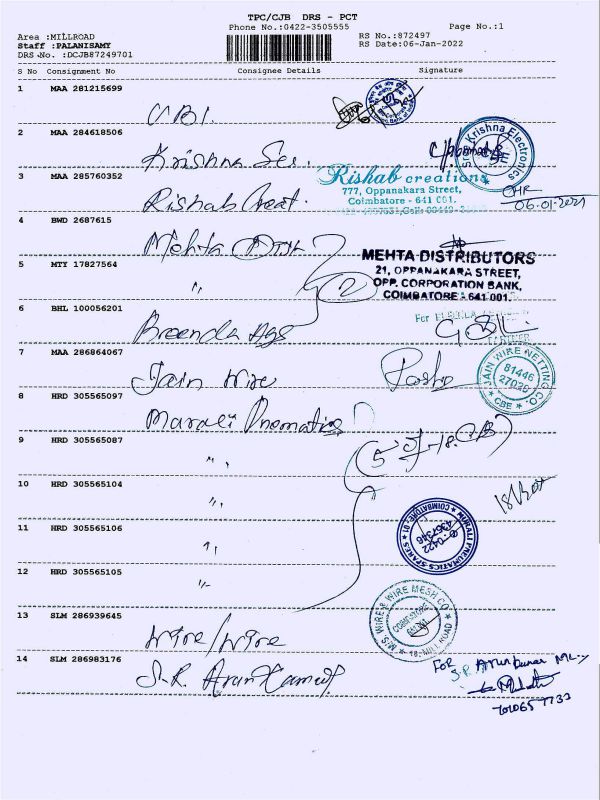 TPC/CJB DRS - PCT
Phone No.:0422-3505555 Page No.:1
Area :MILLROAD RS No.:872497
Staff :PALANISAMY RS Date:06-Jan-2022
DRS No. :DCJB87249701
S No Consignment No Consignee Details Signature
1 MAA 281215699
UBI.
2 MAA 284618506
Krishna Ser.
Sree Krishna Electronics
CBE
3 MAA 285760352
Rishab Creat.
Rishab creations
777, Oppanakara Street,
Coimbatore - 641 001.
06-01-2021
4 BWD 2687615
Mehta
MEHTA DISTRIBUTORS
21, OPPANAKARA STREET,
OPP. CORPORATION BANK,
COIMBATORE - 641 001.
5 MTY 17827564
" 2
6 BHL 100056201
Breenda Ags
For
PARTNER
7 MAA 286864067
Jain Wire
JAIN WIRE NETTING CO.
81446
27025
* CBE *
8 HRD 305565097
Marali Pnomatics
9 HRD 305565087
"
10 HRD 305565104
"
11 HRD 305565106
"
MURALI PNEUMATICS SPARES * COIMBATORE-01
0422
4367346
12 HRD 305565105
"
13 SLM 286939645
Wire/Wire
M/S. WIRE & WIRE MESH CO
COIMBATORE
641 001
18, MILL ROAD
14 SLM 286983176
S.R. Arun Kumar
FOR
S.R Arunkumar